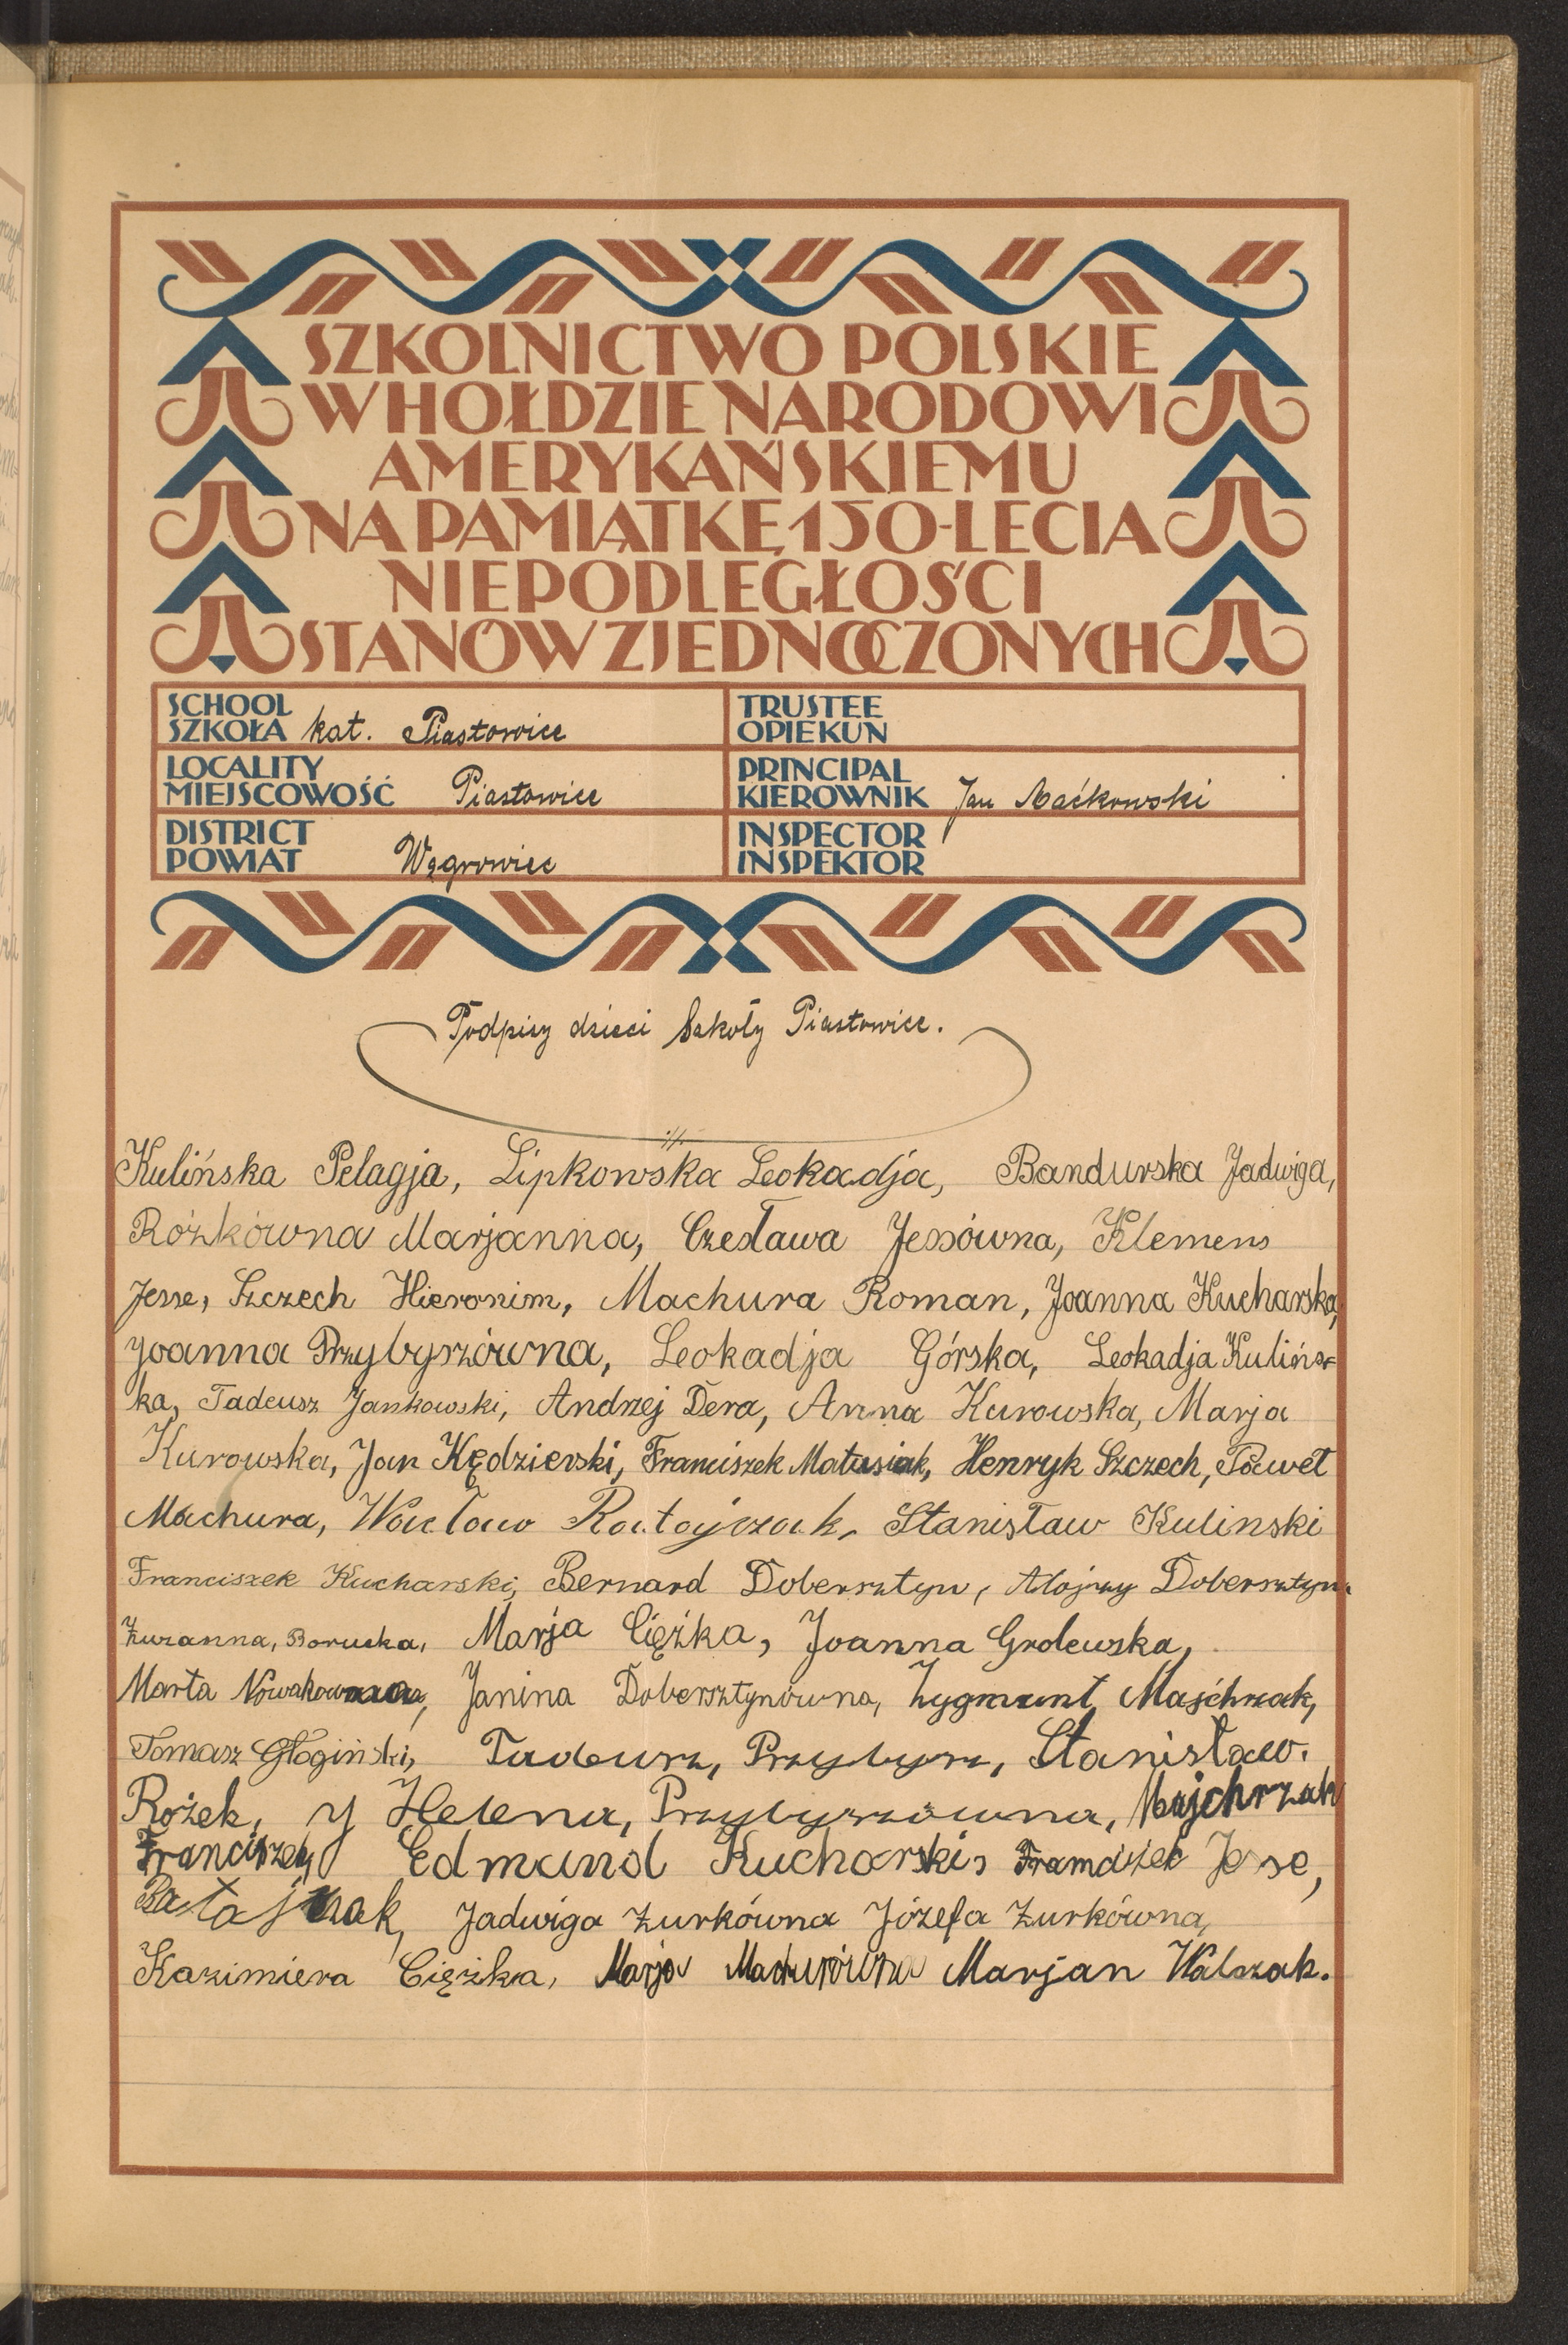 SZKOLNICTWO POLSKIE
W HOŁDZIE NARODOWI
AMERYKAŃSKIEMU
NA PAMIĄTKĘ 150-LECIA
NIEPODLEGŁOŚCI
STANÓW ZJEDNOCZONYCH
SCHOOL
SZKOŁA kat. Piastowice
TRUSTEE
OPIEKUN
LOCALITY
MIEJSCOWOŚĆ Piastowice
PRINCIPAL
KIEROWNIK Jan Maćkowski
DISTRICT
POWIAT Wągrowiec
INSPECTOR
INSPEKTOR
Podpisy dzieci Szkoły Piastowice.
Kulińska Pelagja, Lipkowska Leokadja, Bandurska Jadwiga,
Rożkówna Marjanna, Czesława Jessówna, Klemens
Jesse, Szczech Hieronim, Machura Roman, Joanna Kucharska,
Joanna Przybyszówna, Leokadja Górska, Leokadja Kulińs-
ka, Tadeusz Jankowski, Andrzej Dera, Anna Kurowska, Marja
Kurowska, Jan Kędzierski, Franciszek Matusiak, Henryk Szczech, Paweł
Machura, Wacław Ratajczak, Stanisław Kulinski
Franciszek Kucharski, Bernard Dobersztyn, Alojzy Dobersztyn
Zuzanna, Borucka, Marja Ciężka, Joanna Grolewska,
Marta Nowakowna, Janina Dobersztynówna, Zygmunt Majchrzak,
Tomasz Głogiński, Tadeusz, Przybysz, Stanisław.
Rożek, y Helena, Przybyszówna, Majchrzak
Franciszek Edmund Kucharski, Framciszek Jesse,
Jadwiga Żurkówna Józefa Żurkówna,
Kazimiera Ciężka, Marja Machurówna Marjan Walczak.